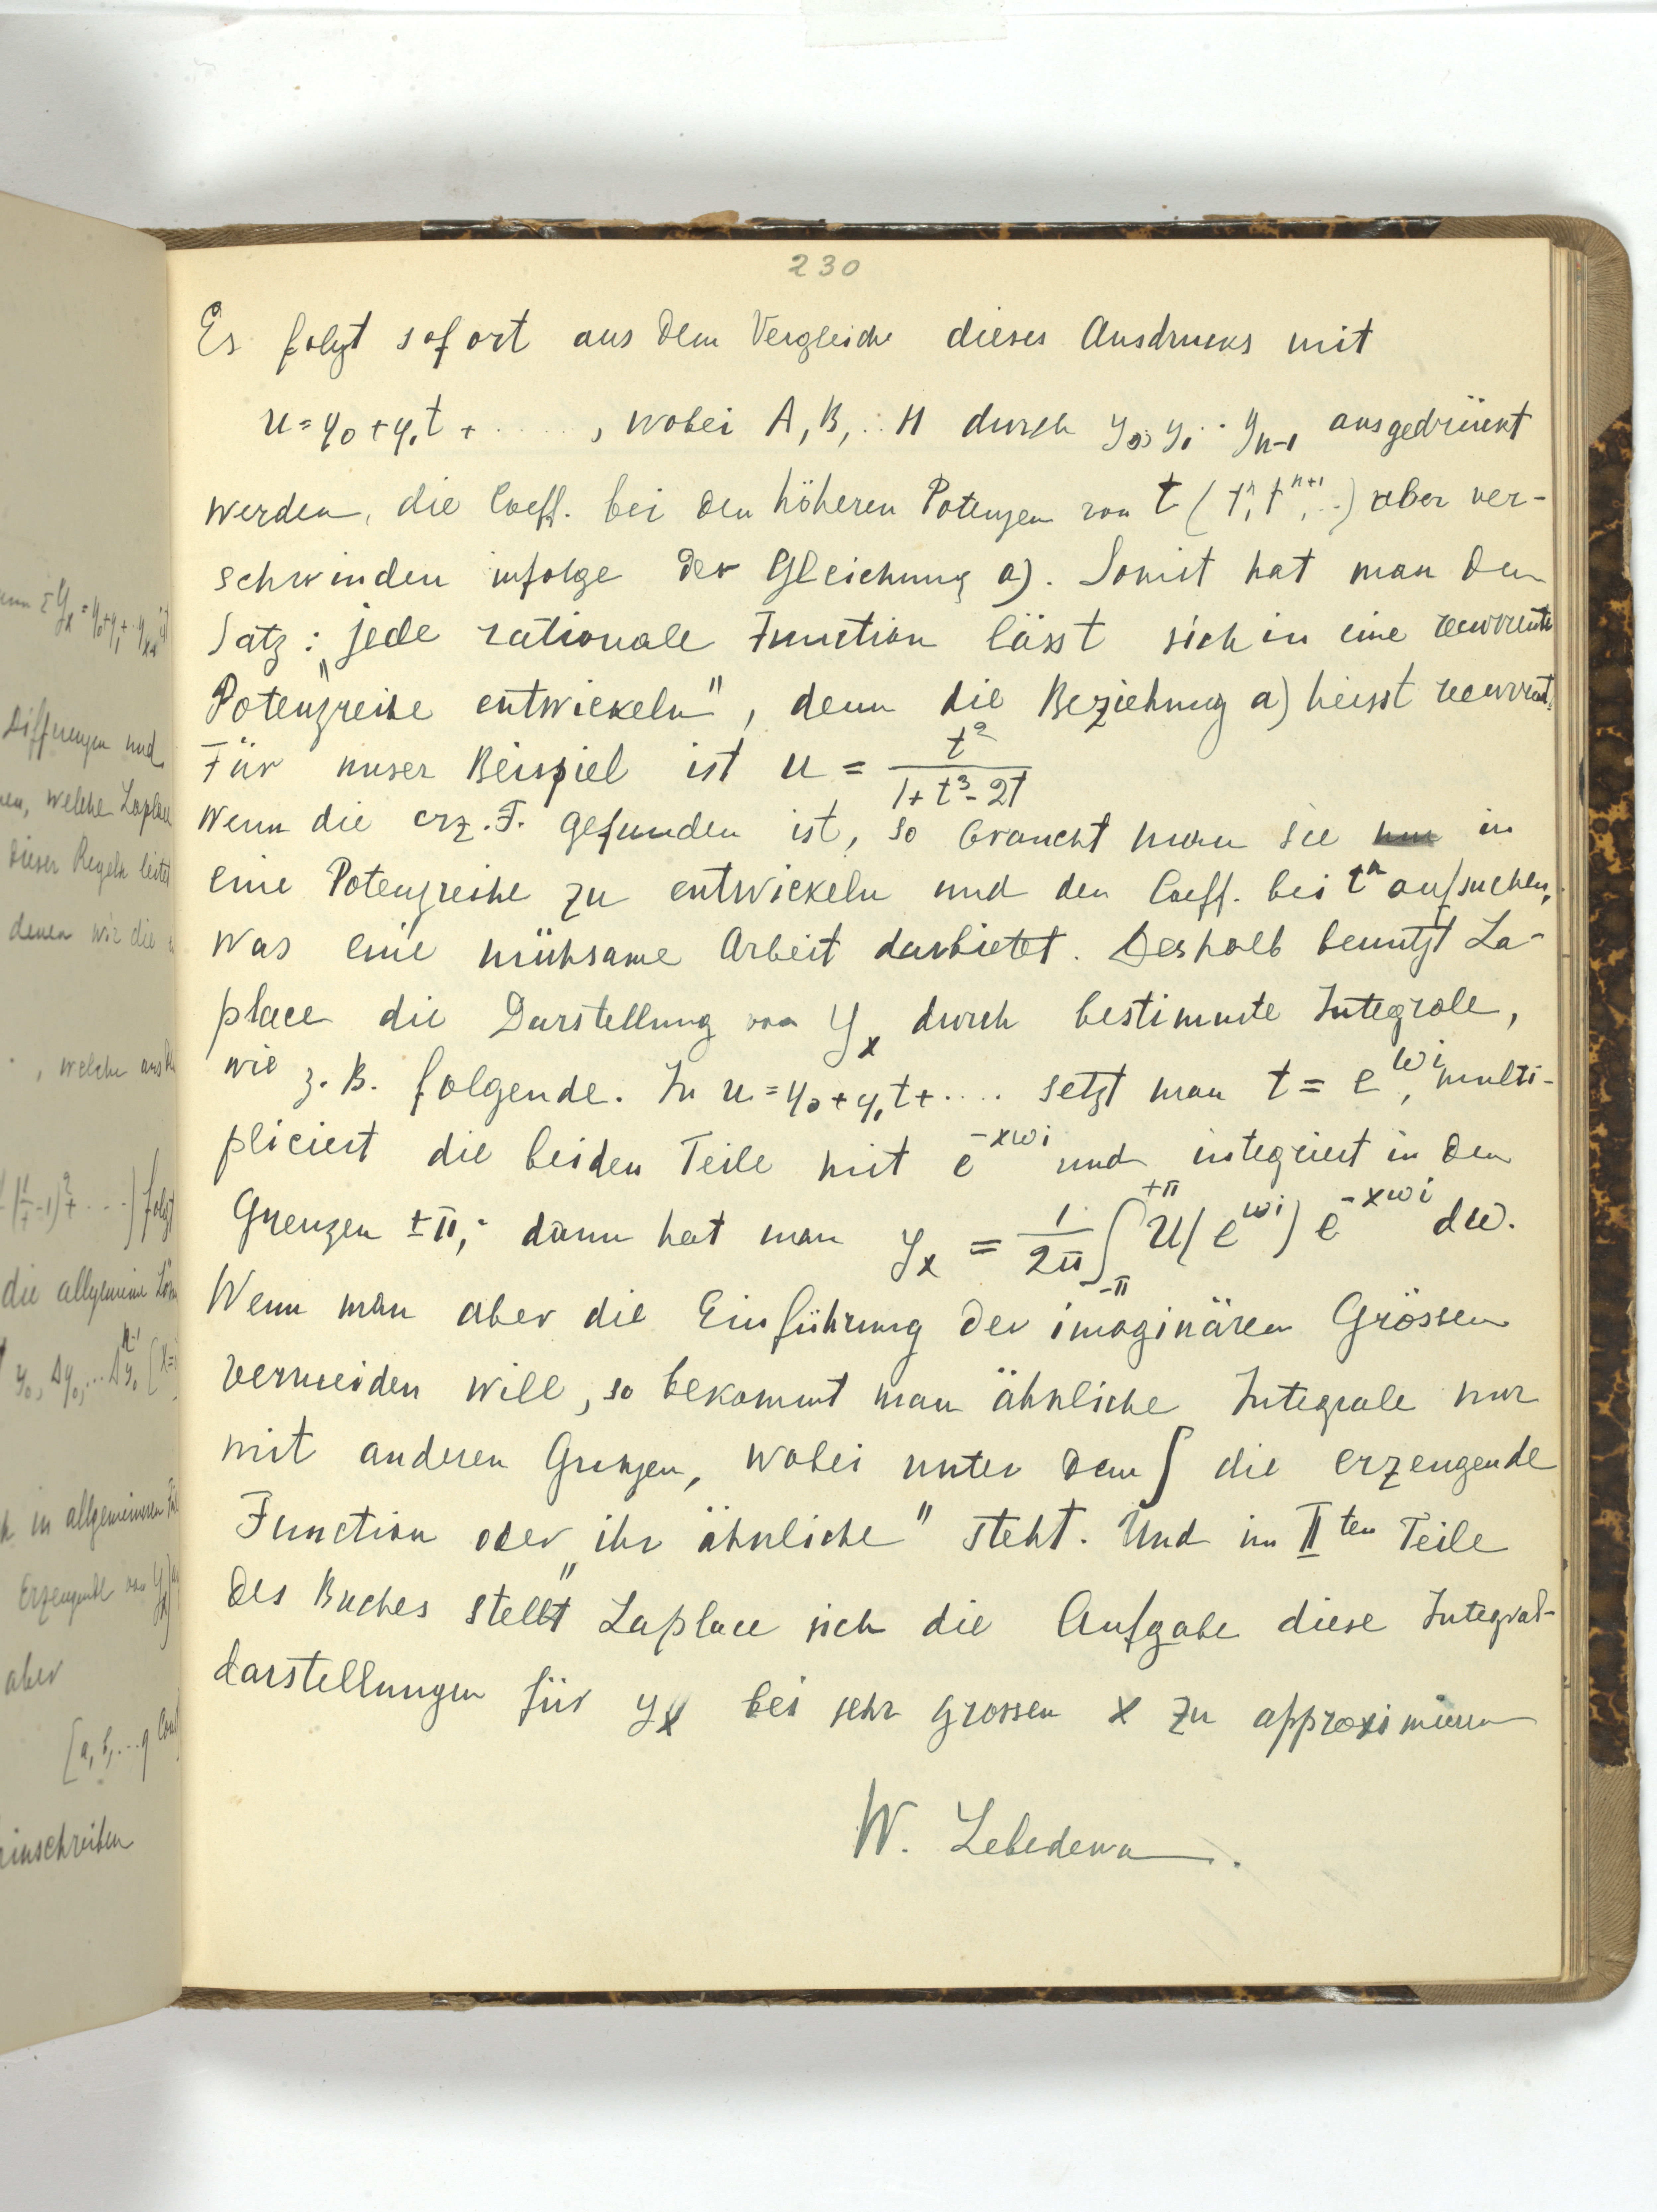 230
Es folgt sofort aus dem Vergleiche dieses Ausdrucks mit
u = y₀ + y₁t + ....., wobei A, B, .. H durch y₀, y₁ .. yₙ₋₁ ausgedrückt
werden, die Coeff. bei den höheren Potenzen von t (tⁿ, tⁿ⁺¹, ..) aber ver-
schwinden infolge der Gleichung a). Somit hat man den
Satz: „jede rationale Function lässt sich in eine recurrente
Potenzreihe entwickeln", denn die Beziehung a) heisst recurrent.
Für unser Beispiel ist u = t²/(1 + t³ - 2t)
Wenn die erz. F. gefunden ist, so braucht man sie in
eine Potenzreihe zu entwickeln und den Coeff. bei tⁿ aufsuchen,
was eine mühsame Arbeit darbietet. Deshalb benutzt La-
place die Darstellung von yₓ durch bestimmte Integrale,
wie z. B. folgende. In u = y₀ + y₁t + .... setzt man t = e^{ωi}, multi-
pliciert die beiden Teile mit e^{-xωi} und integriert in den
Grenzen ±π; dann hat man yₓ = 1/2π ∫_{-π}^{+π} U(e^{ωi}) e^{-xωi} dω.
Wenn man aber die Einführung der imaginären Grössen
vermeiden will, so bekommt man ähnliche Integrale nur
mit anderen Grenzen, wobei unter dem ∫ die erzeugende
Function oder „ihr ähnliche" steht. Und im II ten Teile
des Buches stellt Laplace sich die Aufgabe diese Integral-
darstellungen für yₓ bei sehr grossen x zu approximieren
W. Lebedewa.
Differenzen und
welche Laplace
dieser Regeln leitet
denen wir die
, welche aus
folgt
die allgemeine
y₀, Δy₀, ... Δⁿ⁻¹y₀
in allgemeineren
Erzeugende von yₓ
aber
[a, b, ... q
einschreiben